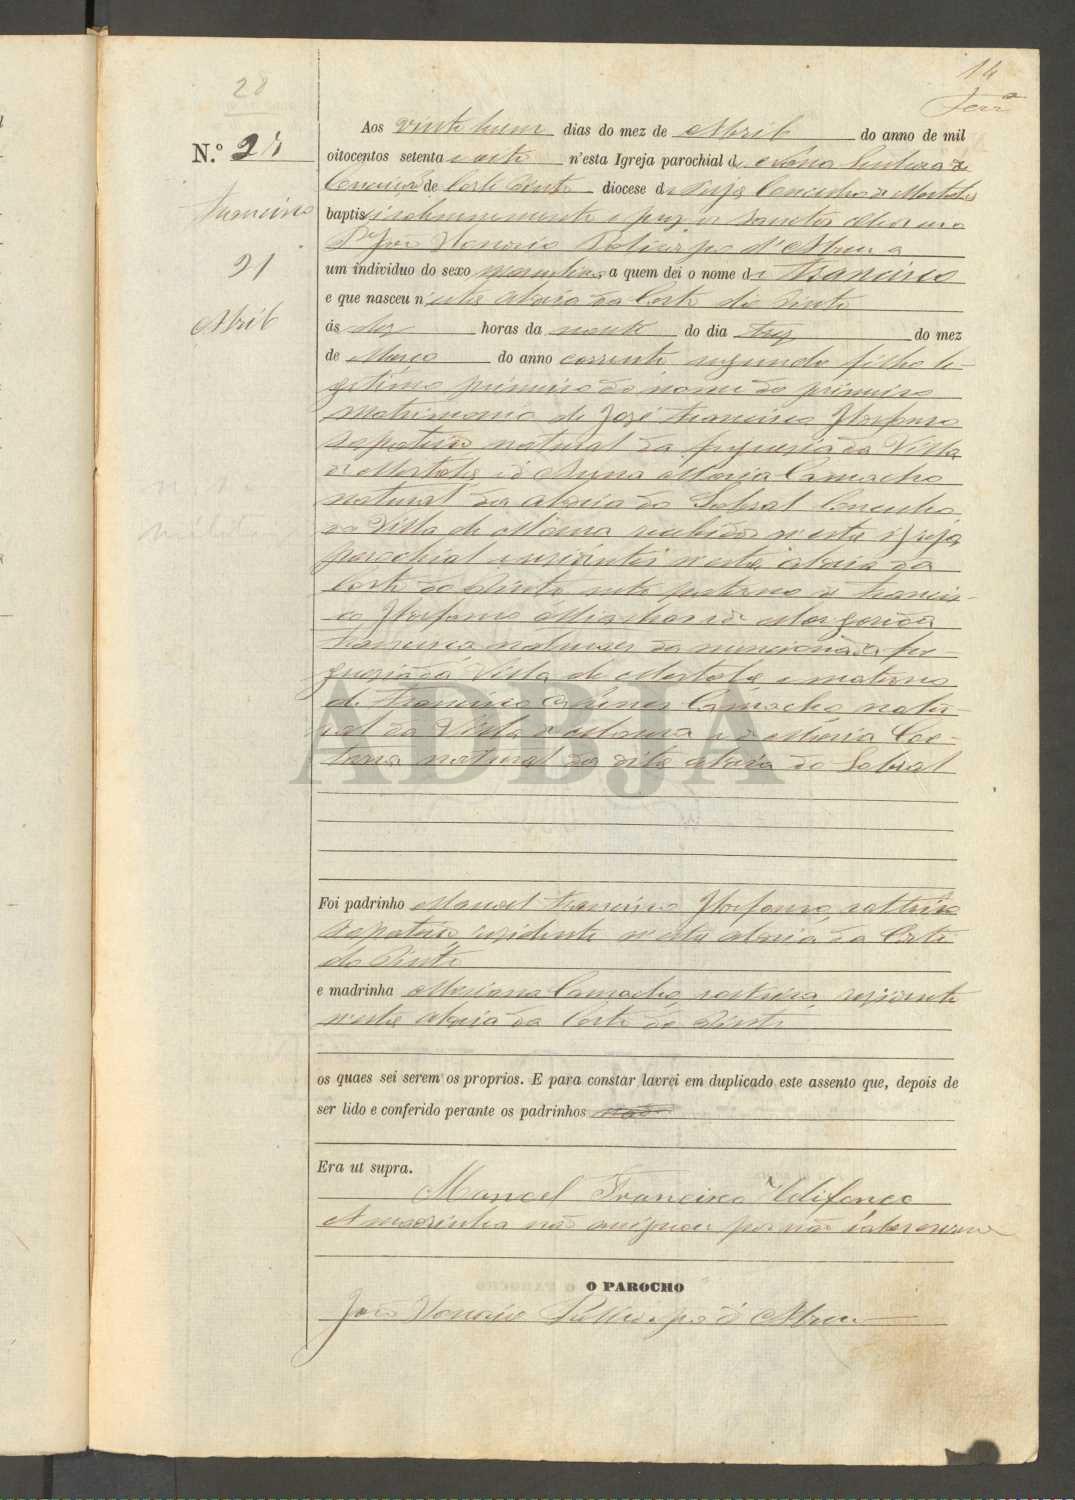 14
Ferrª
28
N.º 24
Francisco
21
Abril
Aos vinte hum dias do mez de Abril do anno de mil
oitocentos setenta e oito n'esta Igreja parochial de Nossa Senhora da
Conceicão de Corte Pinto diocese de Beja Concelho de Mertola
baptisei solemnemente e puz os santos oleos eu o
Pe João Honorio Policarpo d'Abreu a
um individuo do sexo masculino a quem dei o nome de Francisco
e que nasceu n'esta Aldeia da Corte do Pinto
ás dez horas da noute do dia trez do mez
de Março do anno corrente segundo filho le-
gitimo primeiro do nome do primeiro
Matrimonio de José Francisco Ilorfonso
sapateiro natural da freguesia da Villa
de Mertola e de Anna Maria Camacho
natural da Aldeia do Sobral Concelho
da Villa de Moura recebidos n'esta Igreja
parochial e residentes n'esta Aldeia da
Corte do Pinto neto paterno de Francis-
co Ilorfonso e de Margarida
Francisca naturaes da mencionada fre-
guesia da Villa de Mertola e materno
de Francisco Camacho natu-
ral da Villa de Moura e de Maria Cae-
tana natural da dita aldeia do Sobral
ADBJA
Foi padrinho Manoel Francisco Ilorfonso solteiro
sapateiro residente n'esta Aldeia da Corte
do Pinto
e madrinha Marianna Camacho, solteira, residente
n'esta Aldeia da Corte do Pinto
os quaes sei serem os proprios. E para constar lavrei em duplicado este assento que, depois de
ser lido e conferido perante os padrinhos
Era ut supra.
Manoel Francisco Ildifonço
A madrinha não assignou por não saber escrever
O PAROCHO
João Honorio Policarpo d'Abreu